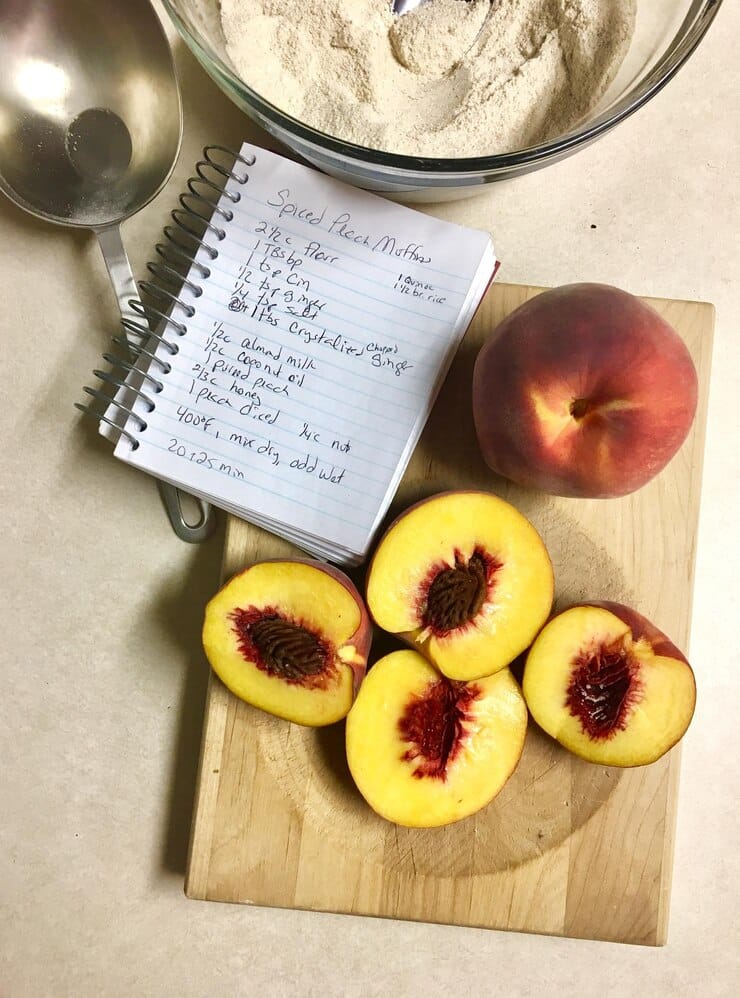 Spiced Peach Muffins
2 1/2 c flour
1 quinoa
1 1/2 br. rice
1 TBS bp
1 tsp Cin
1/2 tsp ginger
1/4 tsp Salt
1 tbs Crystalized Chopped Ginger
1/2 c almond milk
1/2 c coconut oil
1 puréed peach
2/3 c honey
1 peach diced 1/4 c nuts
400°F, mix dry, add wet
20-25 min